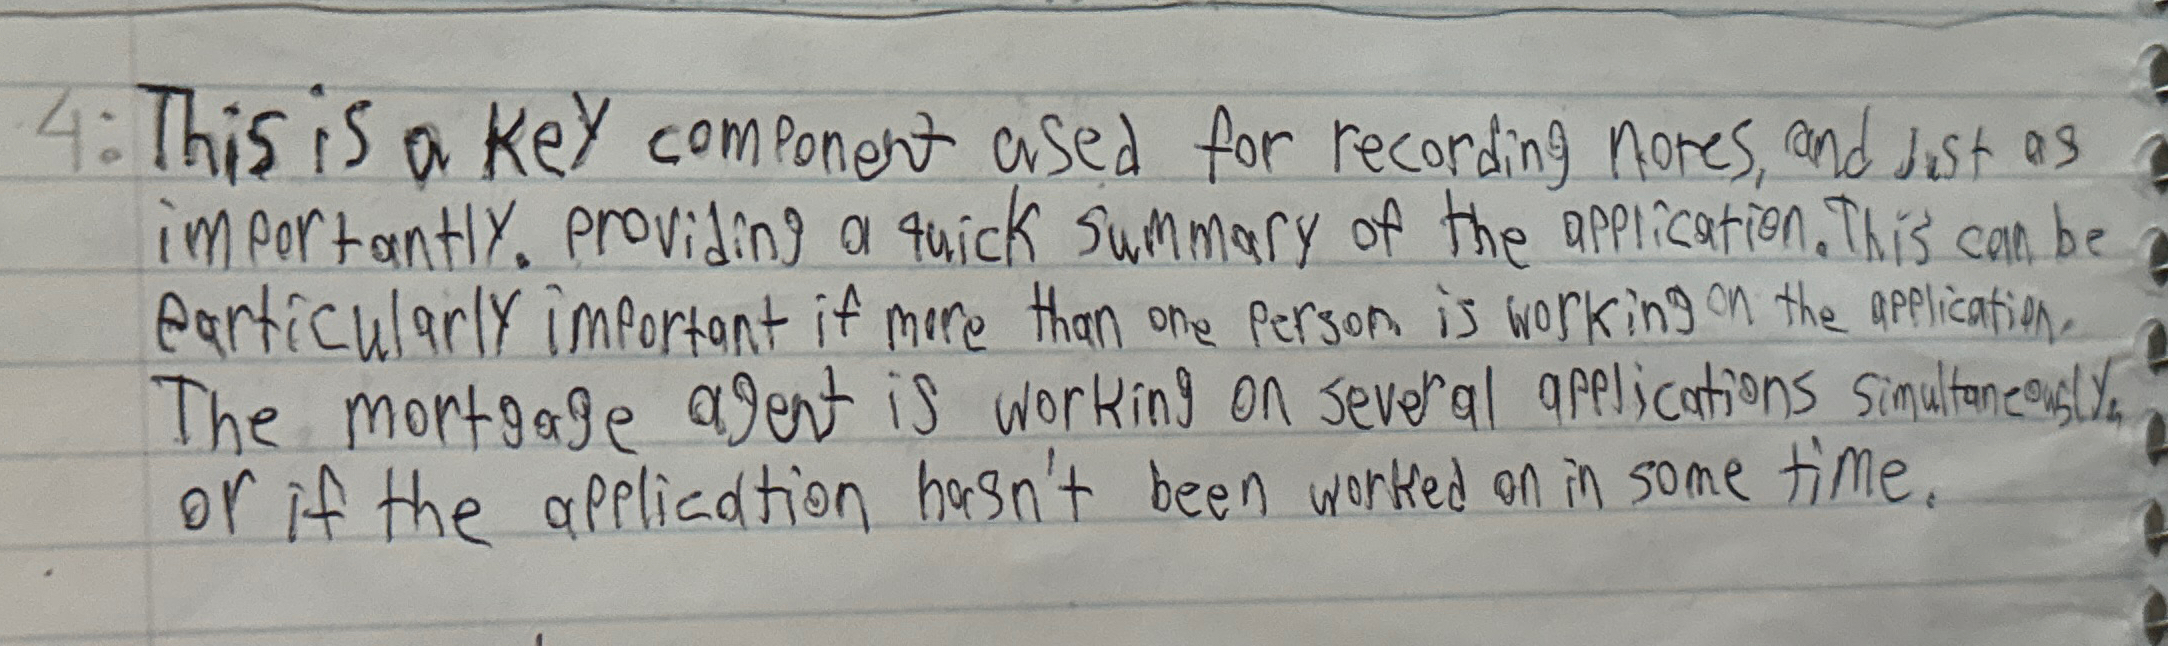 4: This is a key component used for recording notes, and just as
importantly. providing a quick summary of the application. This can be
particularly important if more than one person is working on the application.
The mortgage agent is working on several applications simultaneously,
or if the application hasn't been worked on in some time.